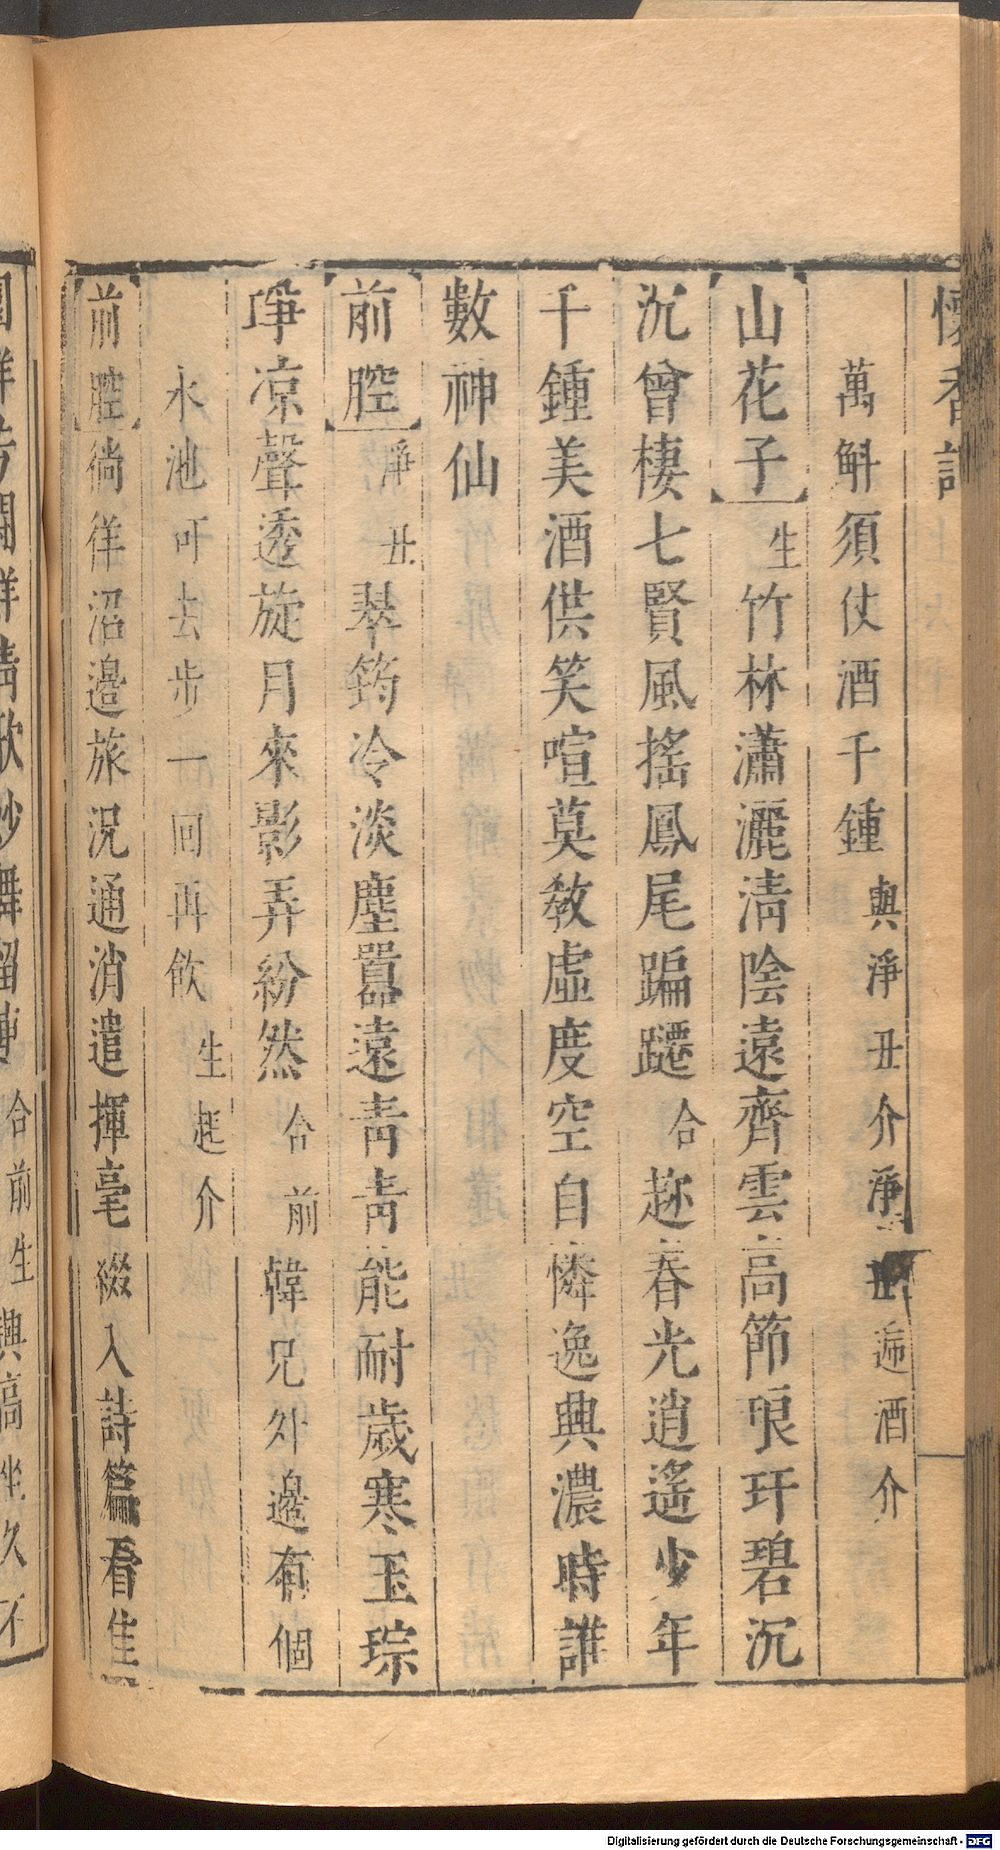 懷香記
萬斛須仗酒千鍾與淨丑介淨丑遞酒介
山花子生竹林瀟灑淸陰遠齊雲高節琅玕碧沉
沉曾棲七賢風搖鳳尾蹁躚合趂春光逍遙少年
千鍾美酒供笑喧莫敎虛度空自憐逸興濃時誰
數神仙
前腔淨丑琴筠冷淡塵囂遠靑靑能耐歲寒玉琮
琤凉聲透旋月來影弄紛然合前韓兄外邊有個
水池可去步一回再飮生起介
前腔徜徉沼邊旅況通消遣揮毫綴入詩篇看佳
合前生興高坐久不
Digitalisierung gefördert durch die Deutsche Forschungsgemeinschaft - DFG